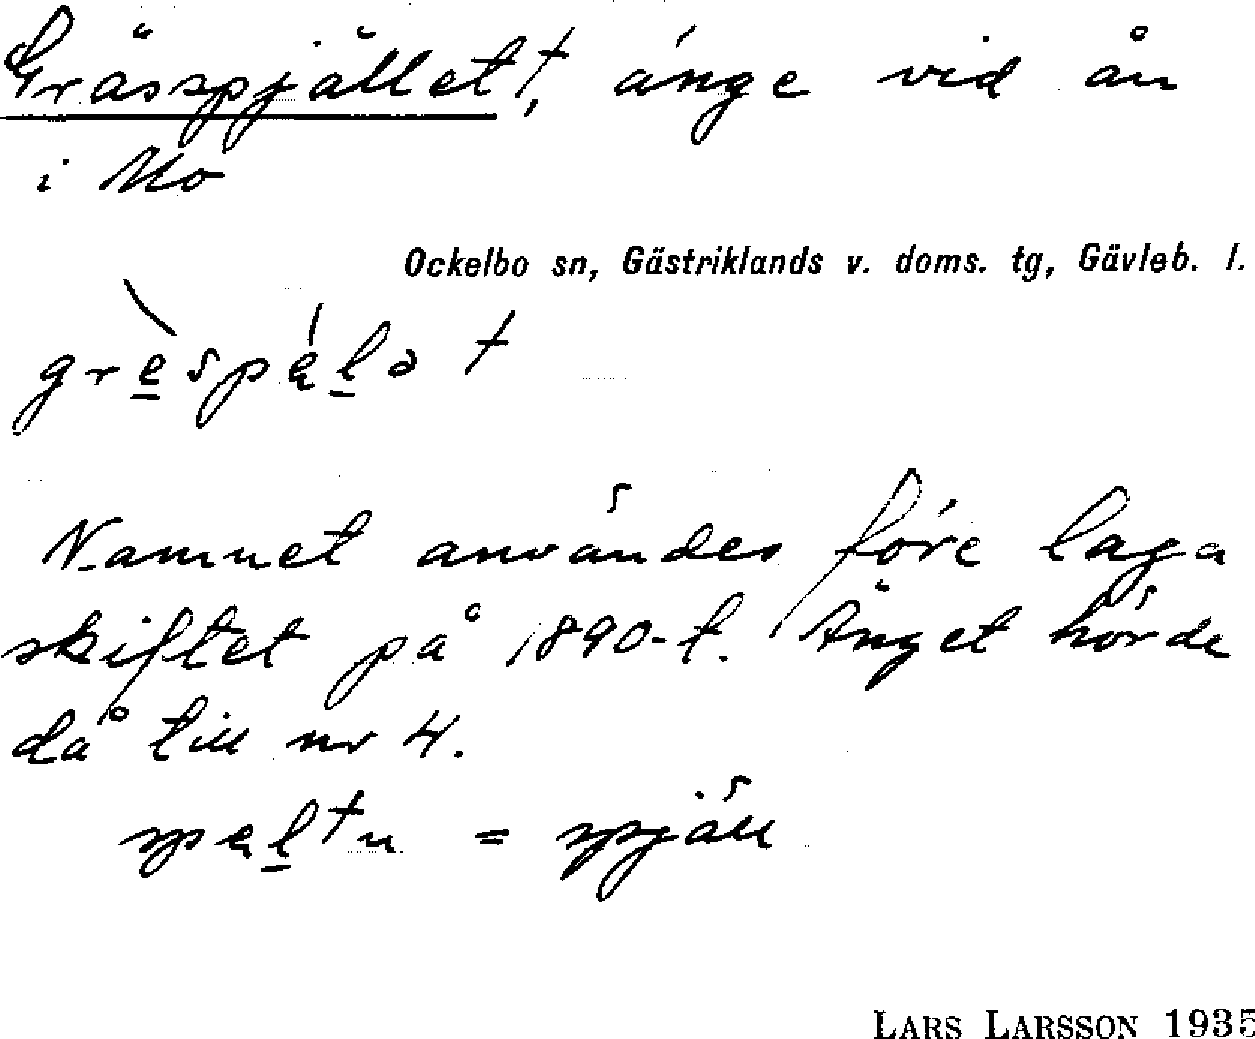 Grässpjället †, änge vid ån
i Mo
Ockelbo sn, Gästriklands v. doms. tg, Gävleb. l.
Namnet användes före laga
skiftet på 1890-t. Änget hörde
då till nr 4.
= spjäll
LARS LARSSON 1935